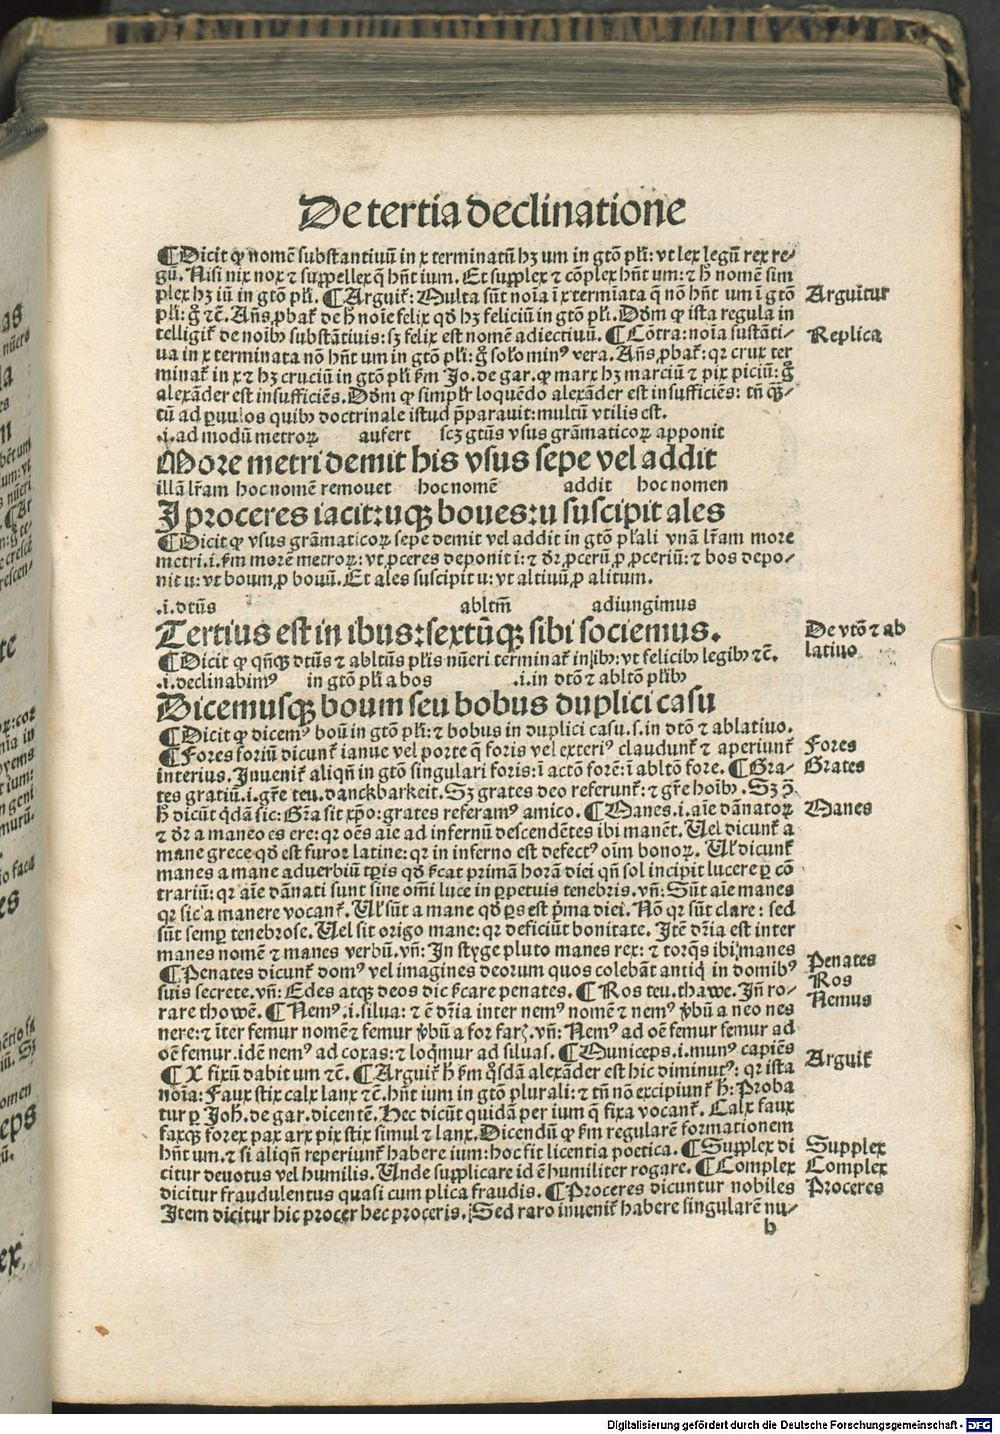 De tertia declinatione
¶Dicit ꝙ nomē substantiuū in x terminatū hꝫ um in gtō pl'i: vt lex legū rex re⸗
gū. Nisi nix nox ⁊ suppellex q̄ hn̄t ium. Et supplex ⁊ cōplex hn̄t um: ⁊ h̄ nomē sim
plex hꝫ iū in gtō pl'i. ¶Arguit̄: Multa sūt noīa ī x termīata q̄ nō hn̄t um ī gtō
pl'i: g̊ ⁊c̄. Añs ꝓbat̄ de h̄ noīe felix qd̓ hꝫ feliciū in gtō pl'i. Dōm ꝙ ista regula in
telligit̄ de noībꝰ substātiuis: sꝫ felix est nomē adiectiuū. ¶Cōtra: noīa sustāti⸗
ua in x terminata nō hn̄t um in gtō pl'i: g̊ sol'o minꝰ vera. Añs ꝓbat̄: qr crux ter
minat̄ in x ⁊ hꝫ cruciū in gtō pl'i ẜm Jo. de gar. ꝙ marx hꝫ marciū ⁊ pix piciū: g̊
alexāder est insufficiēs. Dōm ꝙ simpl'r loquēdo alexāder est insufficiēs: tn̄ qꝫ⸗
tū ad puulos quibꝰ doctrinale istud p̄parauit: multū vtilis est.
.i. ad modū metroꝝ aufert scꝫ gtūs vsus grāmaticoꝝ apponit
More metri demit his vsus sepe vel addit
illā lr̄am hoc nomē remouet hoc nomē addit hoc nomen
J proceres iacit: uqꝫ boues: u suscipit ales
¶Dicit ꝙ vsus grāmaticoꝝ sepe demit vel addit in gtō pl'ali vnā lr̄am more
metri .i. ẜm morē metroꝝ: vt ꝓceres deponit i: ⁊ dr̄ ꝓcerū ꝓ ꝓceriū: ⁊ bos depo⸗
nit u: vt boum ꝓ bouū. Et ales suscipit u: vt alituū ꝓ alitum.
.i. dtūs abltm̄ adiungimus
Tertius est in ibus: sextūqꝫ sibi sociemus.
¶Dicit ꝙ qn̄qꝫ dtūs ⁊ abltūs pl'is nūeri terminat̄ in ibꝰ: vt felicibꝰ legibꝰ ⁊c̄.
.i. declinabimꝰ in gtō pl'i a bos .i. in dtō ⁊ abltō pl'ibꝰ
Dicemusqꝫ boum seu bobus duplici casu
¶Dicit ꝙ dicemꝰ boū in gtō pl'i: ⁊ bobus in duplici casu. s. in dtō ⁊ ablatiuo.
¶Fores foriū dicunt̄ ianue vel porte q̄ foris vel exteriꝰ claudunt̄ ⁊ aperiunt̄
interius. Inuenit̄ aliqn̄ in gtō singulari foris: ī actō forē: ī abltō fore. ¶Gra⸗
tes gratiū .i. gr̄e teu. danckbarkeit. Sꝫ grates deo referunt̄: ⁊ gr̄e hoībꝰ. Sꝫ
h̄ dicūt qdā sic: Gr̄a sit xp̄o: grates referamꝰ amico. ¶Manes .i. aīe dānatoꝝ
⁊ dr̄ a maneo es ere: qr oēs aīe ad infernū descendētes ibi manēt. Uel dicunt̄ a
mane grece qd̓ est furor latine: qr in inferno est defectꝰ oīm bonoꝝ. Ul' dicunt̄
manes a mane aduerbiū tp̄is qd̓ ẜcat primā horā diei qn̄ sol incipit lucere ꝑ cō
trariū: qr aīe dānati sunt sine om̄i luce in ꝑpetuis tenebris. vn̄: Sūt aīe manes
qr sic a manere vocant̄. Ul' sūt a mane qd̓ ꝑs est p̄ma diei. Nō qr sūt clare: sed
sūt semꝑ tenebrose. Uel sit origo mane: qr deficiūt bonitate. Itē dr̄ia est inter
manes nomē ⁊ manes verbū. vn̄: In styge pluto manes rex: ⁊ torqs ibi manes
¶Penates dicunt̄ domꝰ vel imagines deorum quos colebāt antiqi in domibꝰ
suis secrete. vn̄: Edes atqꝫ deos dic ẜcare penates. ¶Ros teu. thawe. Iñ ro⸗
rare thowē. ¶Nemꝰ .i. silua: ⁊ ē dr̄ia inter nemꝰ nomē ⁊ nemꝰ v̄bū a neo nes
nere: ⁊ īter femur nomē ⁊ femur v̄bū a for faris. vn̄: Nemꝰ ad oē femur femur ad
oē femur. idē nemꝰ ad coxas: ⁊ loqmur ad siluas. ¶Municeps .i. munꝰ capiēs
¶X fixū dabit um ⁊c̄. ¶Arguit̄ h̄ ẜm qsdā alexāder est hic diminutꝰ: qr ista
noīa: Faux stix calx lanx ⁊c̄. hn̄t ium in gtō plurali: ⁊ tn̄ nō excipiunt̄ h̄: Proba
tur ꝑ Joh. de gar. dicentē. Hec dicūt quidā per ium q̄ fixa vocant̄. Calx faux
faxqꝫ forex pax arx pix stix simul ⁊ lanx. Dicendū ꝙ ẜm regularē formationem
hn̄t um. ⁊ si aliqn̄ reperiunt̄ habere ium: hoc fit licentia poetica. ¶Supplex di
citur deuotus vel humilis. Unde supplicare id ē humiliter rogare. ¶Complex
dicitur fraudulentus quasi cum plica fraudis. ¶Proceres dicuntur nobiles
Item dicitur hic procer hec proceris. Sed raro inuenit̄ habere singularē nu⸗
b
Arguitur
Replica
De vtō ⁊ ab
latiuo
Fores
Grates
Manes
Penates
Ros
Nemus
Arguit̄
Supplex
Complex
Proceres
Digitalisierung gefördert durch die Deutsche Forschungsgemeinschaft - DFG